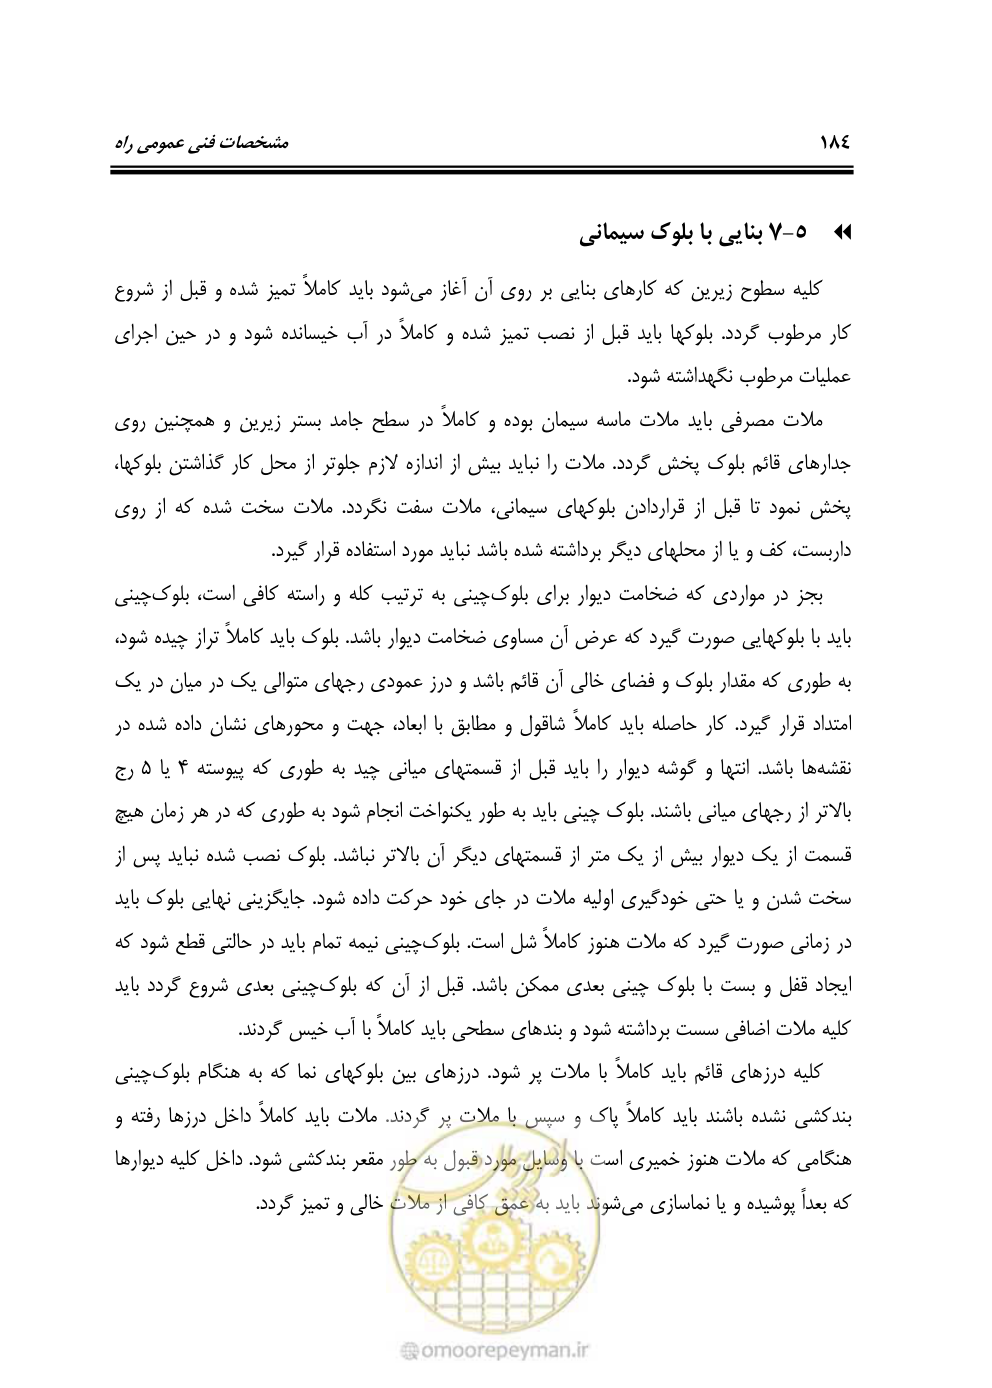 ۱۸٤
مشخصات فنی عمومی راه
۵-۷ بنایی با بلوک سیمانی
کلیه سطوح زیرین که کارهای بنایی بر روی آن آغاز می‌شود باید کاملاً تمیز شده و قبل از شروع
کار مرطوب گردد. بلوکها باید قبل از نصب تمیز شده و کاملاً در آب خیسانده شود و در حین اجرای
عملیات مرطوب نگهداشته شود.
ملات مصرفی باید ملات ماسه سیمان بوده و کاملاً در سطح جامد بستر زیرین و همچنین روی
جدارهای قائم بلوک پخش گردد. ملات را نباید بیش از اندازه لازم جلوتر از محل کار گذاشتن بلوکها،
پخش نمود تا قبل از قراردادن بلوکهای سیمانی، ملات سفت نگردد. ملات سخت شده که از روی
داربست، کف و یا از محلهای دیگر برداشته شده باشد نباید مورد استفاده قرار گیرد.
بجز در مواردی که ضخامت دیوار برای بلوک‌چینی به ترتیب کله و راسته کافی است، بلوک‌چینی
باید با بلوکهایی صورت گیرد که عرض آن مساوی ضخامت دیوار باشد. بلوک باید کاملاً تراز چیده شود،
به طوری که مقدار بلوک و فضای خالی آن قائم باشد و درز عمودی رجهای متوالی یک در میان در یک
امتداد قرار گیرد. کار حاصله باید کاملاً شاقول و مطابق با ابعاد، جهت و محورهای نشان داده شده در
نقشه‌ها باشد. انتها و گوشه دیوار را باید قبل از قسمتهای میانی چید به طوری که پیوسته ۴ یا ۵ رج
بالاتر از رجهای میانی باشند. بلوک چینی باید به طور یکنواخت انجام شود به طوری که در هر زمان هیچ
قسمت از یک دیوار بیش از یک متر از قسمتهای دیگر آن بالاتر نباشد. بلوک نصب شده نباید پس از
سخت شدن و یا حتی خودگیری اولیه ملات در جای خود حرکت داده شود. جایگزینی نهایی بلوک باید
در زمانی صورت گیرد که ملات هنوز کاملاً شل است. بلوک‌چینی نیمه تمام باید در حالتی قطع شود که
ایجاد قفل و بست با بلوک چینی بعدی ممکن باشد. قبل از آن که بلوک‌چینی بعدی شروع گردد باید
کلیه ملات اضافی سست برداشته شود و بندهای سطحی باید کاملاً با آب خیس گردند.
کلیه درزهای قائم باید کاملاً با ملات پر شود. درزهای بین بلوکهای نما که به هنگام بلوک‌چینی
بندکشی نشده باشند باید کاملاً پاک و سپس با ملات پر گردند. ملات باید کاملاً داخل درزها رفته و
هنگامی که ملات هنوز خمیری است با وسایل مورد قبول به طور مقعر بندکشی شود. داخل کلیه دیوارها
که بعداً پوشیده و یا نماسازی می‌شوند باید به عمق کافی از ملات خالی و تمیز گردد.
امور پیمان
@omoorepeyman.ir